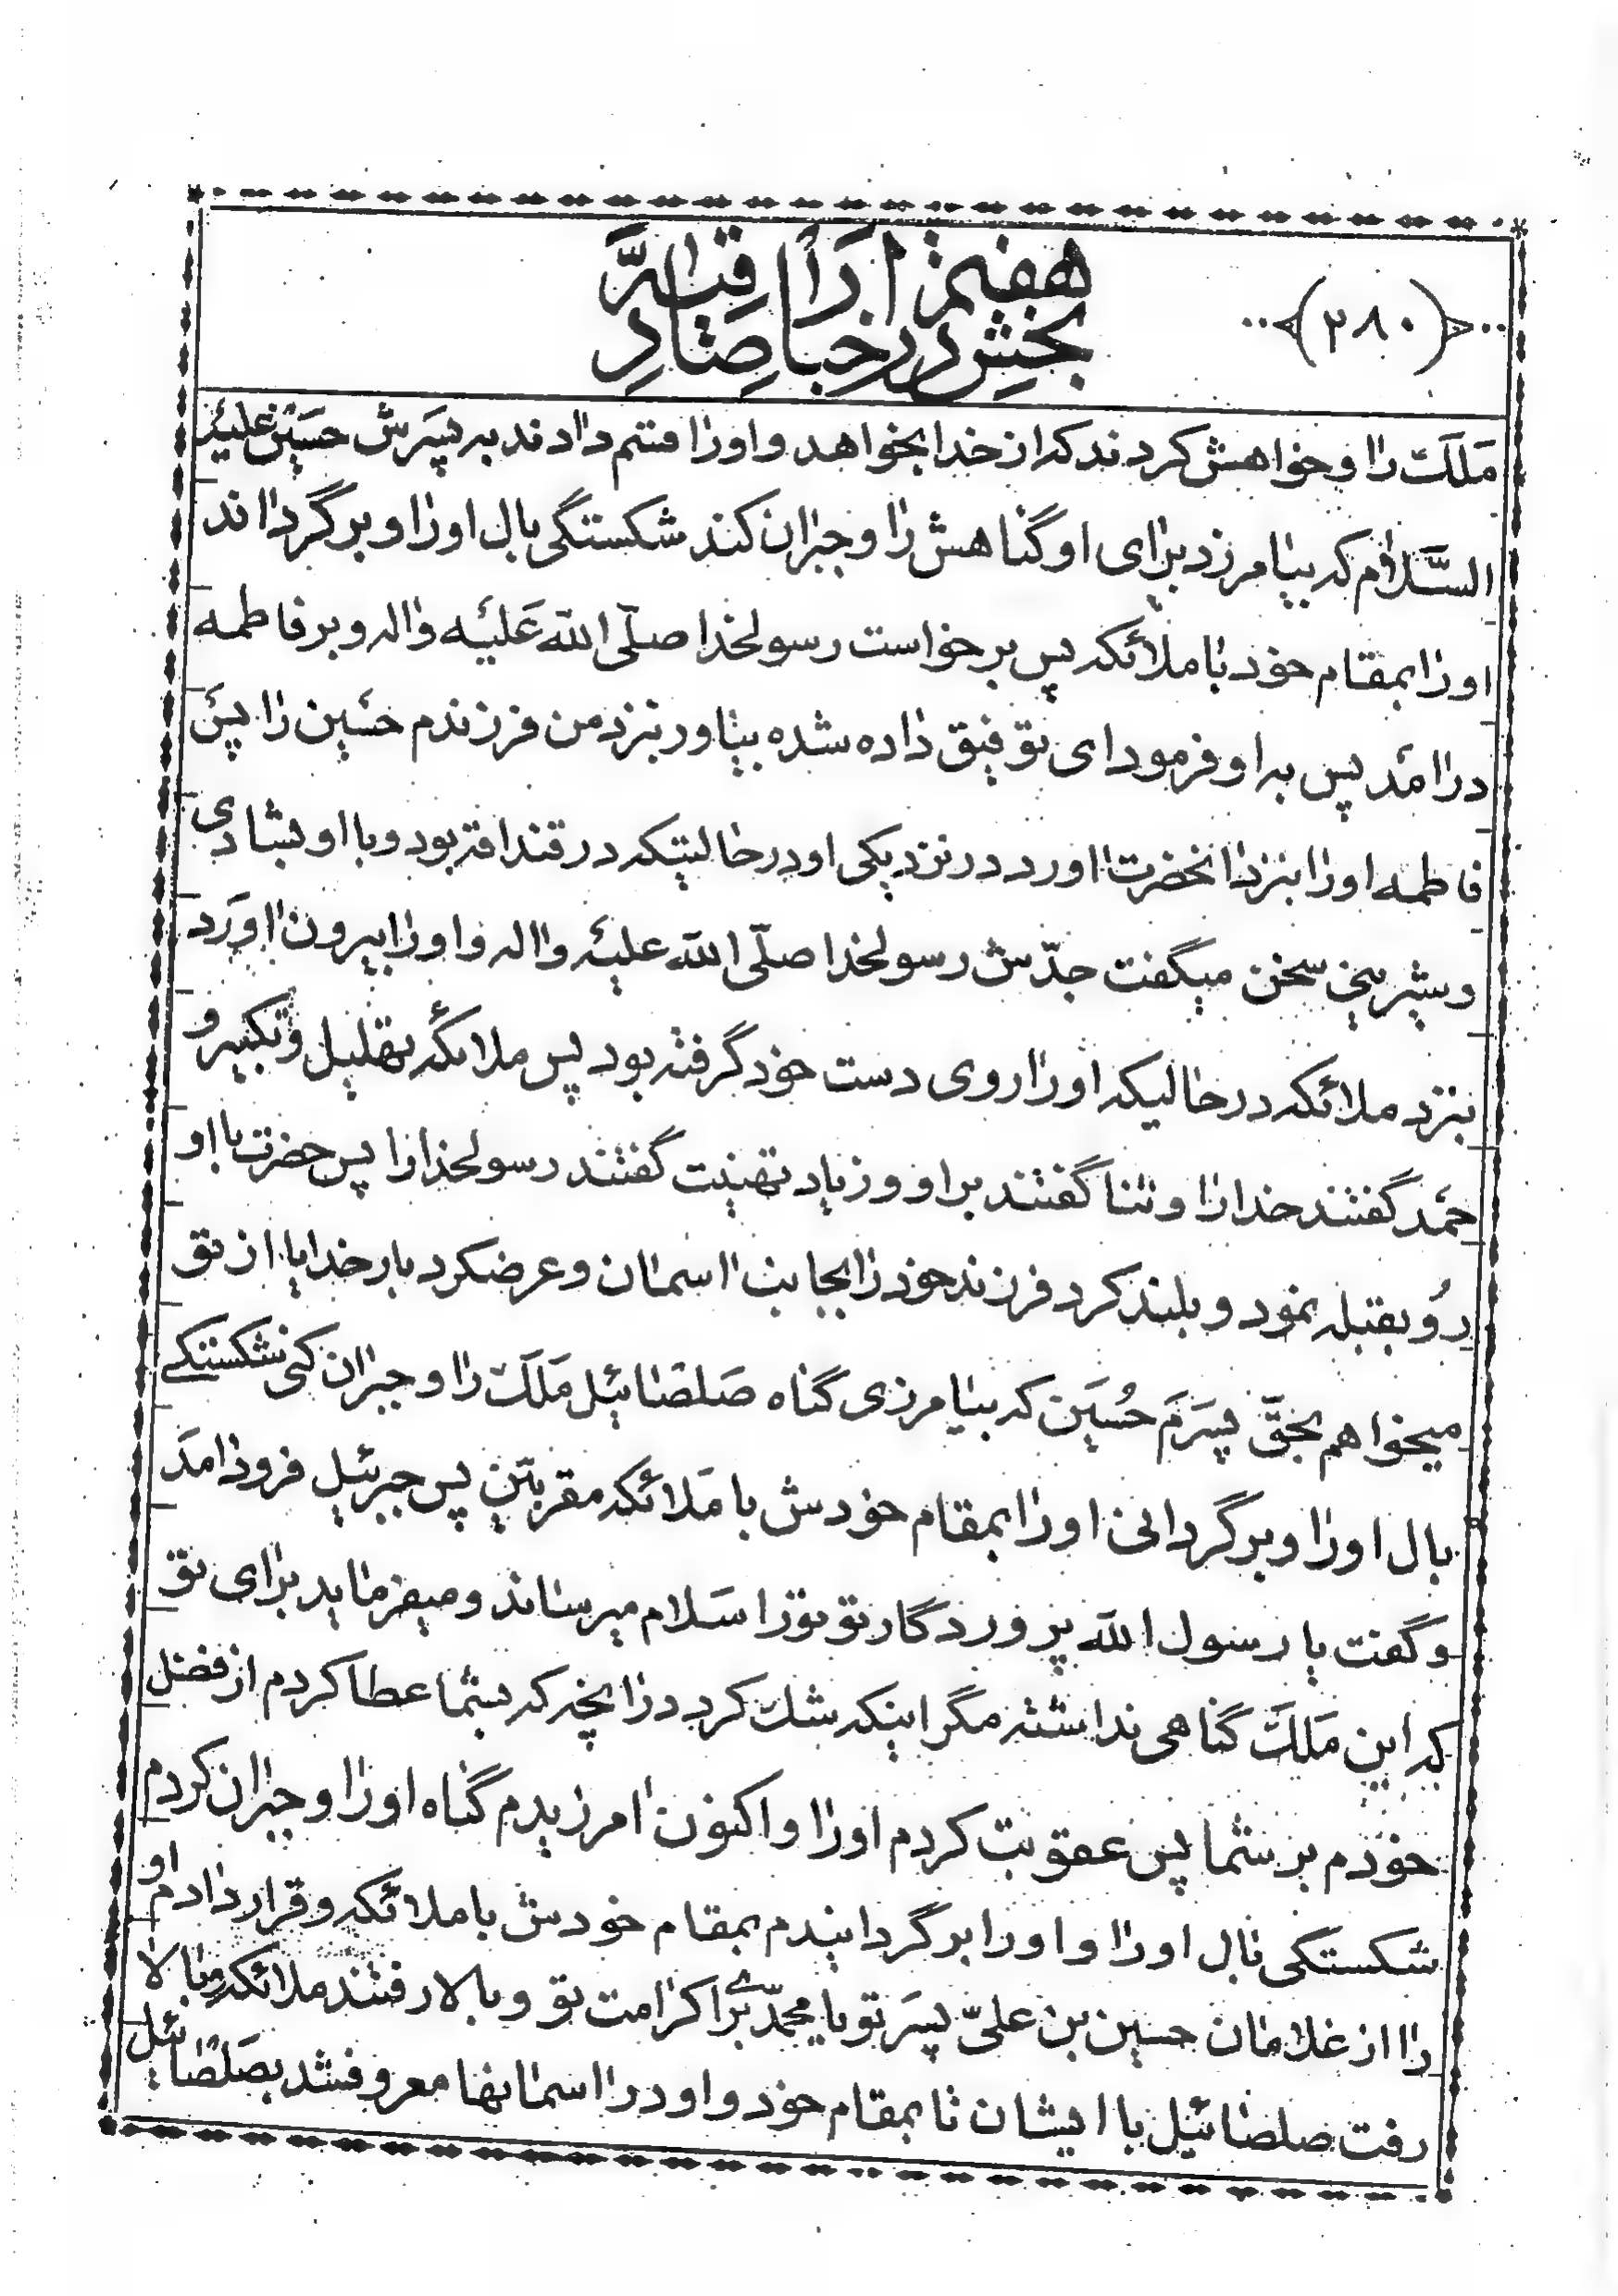 (۲۸۰)
بخش هفتم در اخبار صادره
ملک را و خواهش کردند که از خدا بخواهد و او را قسم دادند به پسرش حسین علیه
السّلام که بیامرزد برای او گناهش را و جبران کند شکستگی بال او را و برگرداند
او را بمقام خود با ملائکه پس برخواست رسولخدا صلّی الله علیه و اله و بر فاطمه
درامد پس به او فرمود ای توفیق داده شده بیاور نزد من فرزندم حسین را پس
فاطمه او را بنزد انحضرت اورد در نزدیکی او درحالیتیکه در قنداقه بود و با او بشادی
و بشیرینی سخن میگفت جدّش رسولخدا صلّی الله علیه و اله و او را بیرون اورد
بنزد ملائکه درحالیکه او را روی دست خود گرفته بود پس ملائکه تهلیل و تکبیر و
حمد گفتند خدا را و ثنا گفتند بر او و زیاد تهنیت گفتند رسولخدا را پس حضرت با او
رُو بقبله نمود و بلند کرد فرزند خود را بجانب اسمان و عرضکرد بار خدایا از تو
میخواهم بحقّ پسرم حُسین که بیامرزی گناه صلصائیل ملک را و جبران کنی شکستگی
بال او را و برگردانی او را بمقام خودش با ملائکه مقرّبین پس جبرئیل فرود امد
و گفت یا رسول الله پروردگار تو تو را سلام میرساند و میفرماید برای تو
که این ملک گناهی نداشته مگر اینکه شک کرد در انچه که بشما عطا کردم از فضل
خودم بر شما پس عقوبت کردم او را و اکنون امرزیدم گناه او را و جبران کردم
شکستگی بال او را و او را برگردانیدم بمقام خودش با ملائکه و قرار دادم او
را از غلامان حسین بن علیّ پسر تو یا محمّد برای کرامت تو و بالا رفتند ملائکه و ببالا
رفت صلصائیل با ایشان تا بمقام خود و او در اسمانها معروفشد بصلصائیل